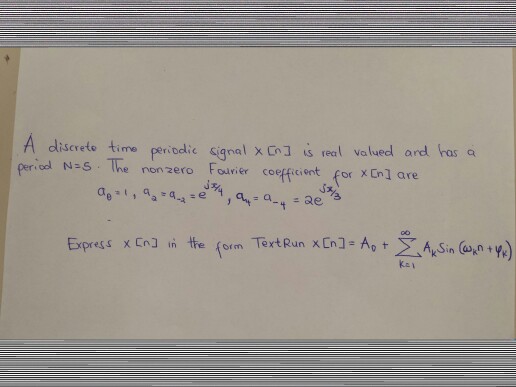 A discrete time periodic signal x[n] is real valued and has a
period N=5. The nonzero Fourier coefficient for x[n] are
a₀ = 1, a₂ = a₋₂ = e^{jπ/4}, a₄ = a₋₄ = 2e^{jπ/3}
Express x[n] in the form TextRun x[n] = A₀ + ∑_{k=1}^{∞} Aₖ Sin (ωₖn + φₖ)